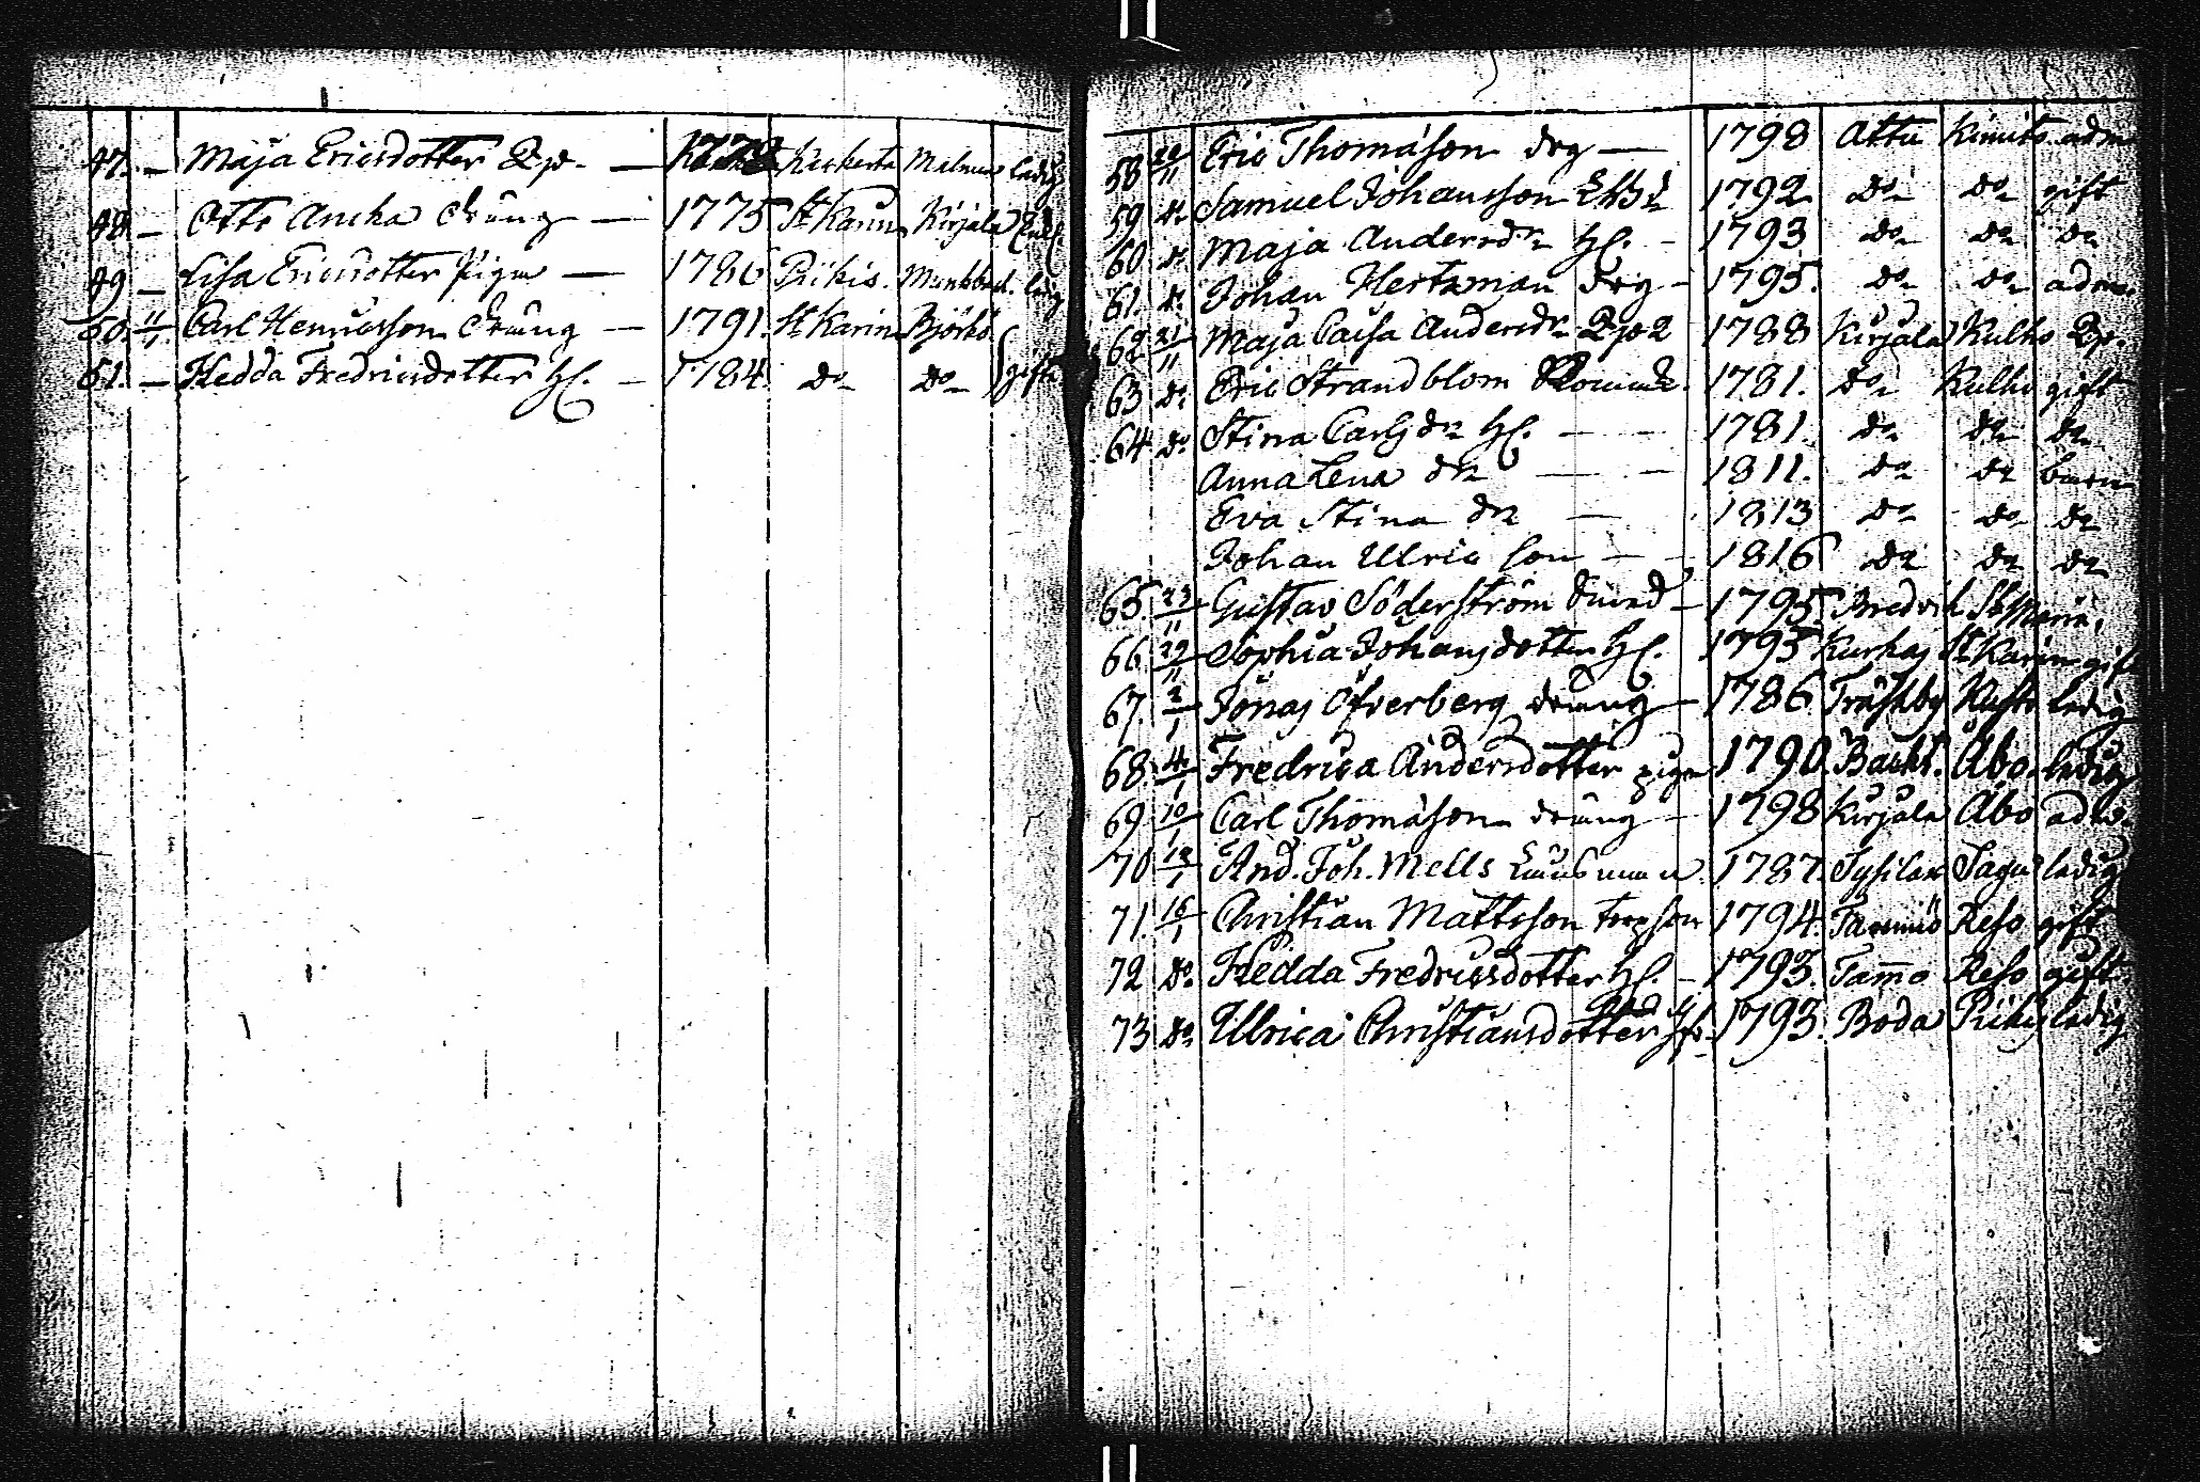 47. — Maja Ericsdotter Qp. — 1772 Malmen ledig
48 — Otto Ancka dräng — 1775 St Karin Kirjala Enkl.
49 — Lisa Ericsdotter Piga — 1786 Pikis. Munkbod. ledig
50. 11/1 Carl Henricsson dräng — 1791. St Karin Björkö
51. — Hedda Fredricsdotter H. — 1784. do do gifta
58 20/11 Eric Thomasson drg — 1798 Attu Kimito adm
59 do Samuel Johansson 1792 do do gift
60 do Maja Andersdr H. – 1793 do do do
61. do Johan Hertzman drg – 1795. do do adm.
62 21/11 Maja Caisa Andersdr 1788 Kirjala Kulho Qp.
63 do Eric Strandblom 1781. do Kulho gift
64 do Stina Carlsdr H. — 1781. do do do
Anna Lena dr — 1811. do do barn
Eva Stina dr — 1813 do do do
Johan Ulric son — 1816 do do do
65. 23/11 Gustav Söderström — 1795 St Maria,
66. 29/11 Sophia Johansdotter H. 1795 St Karin gift
67. 2/1 Jonas Öfverberg dräng — 1786. Träskby Kusto ledig
68. 4/1 Fredrica Andersdotter piga 1790. Åbo. ledig
69 10/1 Carl Thomasson dräng — 1798 Kirjala Åbo adm.
70 12/1 And. Joh. Mells 1787. Sagu ledig
71. 16/1 Christian Mattsson 1794. Reso gift
72 do Hedda Fredricsdotter H. – 1793. Tammo Reso gift
73 do Ulrica Christiansdotter 1793. Boda Pikis ledig